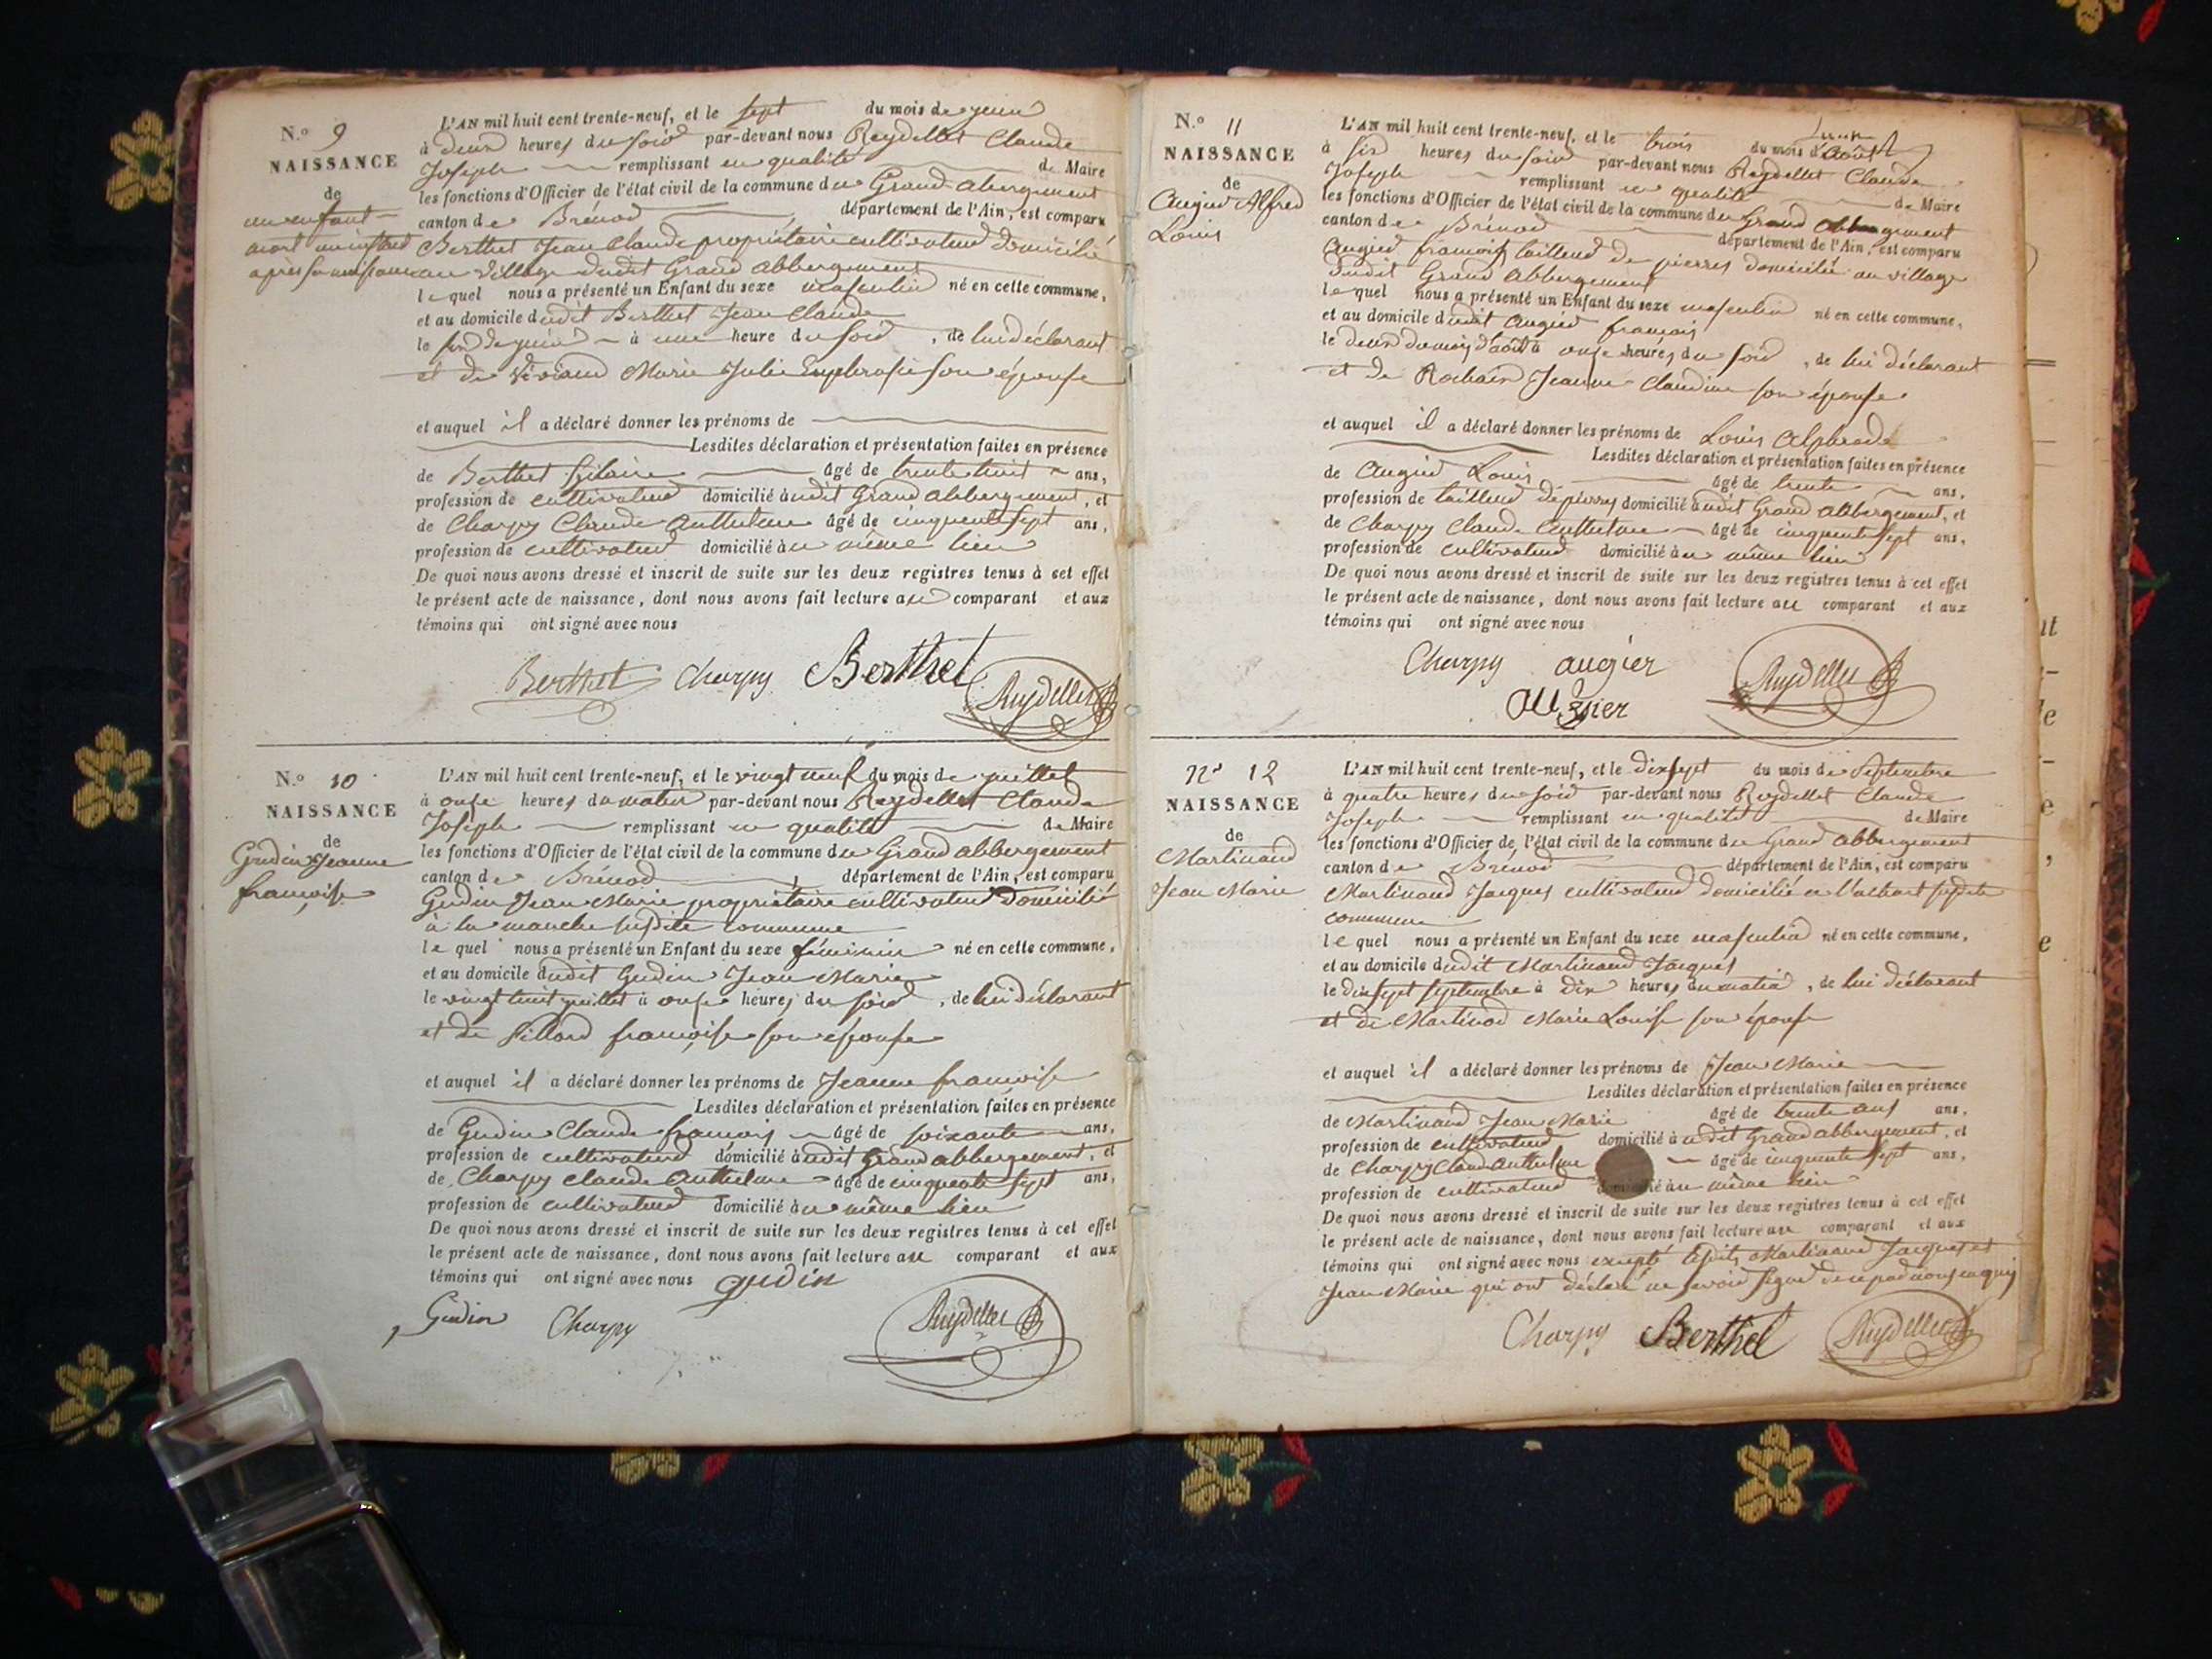 N.o 9
NAISSANCE
de
un enfant
mort un instant
après sa naissance
L'AN mil huit cent trente-neuf, et le sept du mois de juin
à deux heures du soir par-devant nous Reydellet Claude
Joseph remplissant en qualité de Maire
les fonctions d'Officier de l'état civil de la commune du Grand abergement
canton de Brénod département de l'Ain, est comparu
Berthet Jean Claude propriétaire cultivateur domicilié
au village dudit Grand abbergement
lequel nous a présenté un Enfant du sexe masculin né en cette commune,
et au domicile dudit Berthet Jean Claude
le six de juin à une heure du soir, de lui déclarant
et de Marie Julie Euphrosie son épouse
et auquel il a déclaré donner les prénoms de
Lesdites déclaration et présentation faites en présence
de Berthet hilaire âgé de trente huit ans,
profession de cultivateur domicilié audit Grand abbergement, et
de Charpy Claude Anthelme âgé de cinquante sept ans,
profession de cultivateur domicilié au même lieu
De quoi nous avons dressé et inscrit de suite sur les deux registres tenus à cet effet
le présent acte de naissance, dont nous avons fait lecture au comparant et aux
témoins qui ont signé avec nous
Berthet Charpy Berthet Reydellet
N.o 10
NAISSANCE
de
Gudin Jeanne
françoise
L'AN mil huit cent trente-neuf, et le vingt neuf du mois de juillet
à onze heures du matin par-devant nous Reydellet Claude
Joseph remplissant en qualité de Maire
les fonctions d'Officier de l'état civil de la commune du Grand abbergement
canton de Brénod département de l'Ain, est comparu
Gudin Jean Marie propriétaire cultivateur domicilié
à la manche susdite commune
lequel nous a présenté un Enfant du sexe féminin né en cette commune,
et au domicile dudit Gudin Jean Marie
le vingt huit juillet à onze heures du soir, de lui déclarant
et de Pillard françoise son épouse
et auquel il a déclaré donner les prénoms de Jeanne françoise
Lesdites déclaration et présentation faites en présence
de Gudin Claude françois âgé de soixante ans,
profession de cultivateur domicilié audit Grand abbergement, et
de Charpy Claude Anthelme âgé de cinquante sept ans,
profession de cultivateur domicilié au même lieu
De quoi nous avons dressé et inscrit de suite sur les deux registres tenus à cet effet
le présent acte de naissance, dont nous avons fait lecture au comparant et aux
témoins qui ont signé avec nous gudin
Gudin Charpy Reydellet
N.o 11
NAISSANCE
de
Augier Alfred
Louis
L'AN mil huit cent trente-neuf, et le trois du mois d'août
à six heures du soir par-devant nous Reydellet Claude
Joseph remplissant en qualité de Maire
les fonctions d'Officier de l'état civil de la commune du Grand abbergement
canton de Brénod département de l'Ain, est comparu
Augier françois tailleur de pierres domicilié au village
dudit Grand abbergement
lequel nous a présenté un Enfant du sexe masculin né en cette commune,
et au domicile dudit Augier françois
le deux du mois d'août à onze heures du soir, de lui déclarant
et de Rochaix Jeanne Claudine son épouse
et auquel il a déclaré donner les prénoms de Louis Alphrede
Lesdites déclaration et présentation faites en présence
de Augier Louis âgé de trente ans,
profession de tailleur de pierres domicilié audit Grand abbergement, et
de Charpy Claude Anthelme âgé de cinquante sept ans,
profession de cultivateur domicilié au même lieu
De quoi nous avons dressé et inscrit de suite sur les deux registres tenus à cet effet
le présent acte de naissance, dont nous avons fait lecture au comparant et aux
témoins qui ont signé avec nous
Charpy augier Reydellet
augier
No 12
NAISSANCE
de
Martinand
Jean Marie
L'AN mil huit cent trente-neuf, et le dix sept du mois de Septembre
à quatre heures du soir par-devant nous Reydellet Claude
Joseph remplissant en qualité de Maire
les fonctions d'Officier de l'état civil de la commune du Grand abbergement
canton de Brénod département de l'Ain, est comparu
Martinand Jacques cultivateur domicilié à susdite
commune
lequel nous a présenté un Enfant du sexe masculin né en cette commune,
et au domicile dudit Martinand Jacques
le dix sept septembre à dix heures du matin, de lui déclarant
et de Martinod Marie Louise son épouse
et auquel il a déclaré donner les prénoms de Jean Marie
Lesdites déclaration et présentation faites en présence
de Martinand Jean Marie âgé de trente ans ans,
profession de cultivateur domicilié audit Grand abbergement, et
de Charpy Claude Anthelme âgé de cinquante sept ans,
profession de cultivateur domicilié au même lieu
De quoi nous avons dressé et inscrit de suite sur les deux registres tenus à cet effet
le présent acte de naissance, dont nous avons fait lecture au comparant et aux
témoins qui ont signé avec nous excepté lesdits Martinand Jacques et
Jean Marie qui ont déclaré ne savoir signer de ce par nous enquis
Charpy Berthet Reydellet